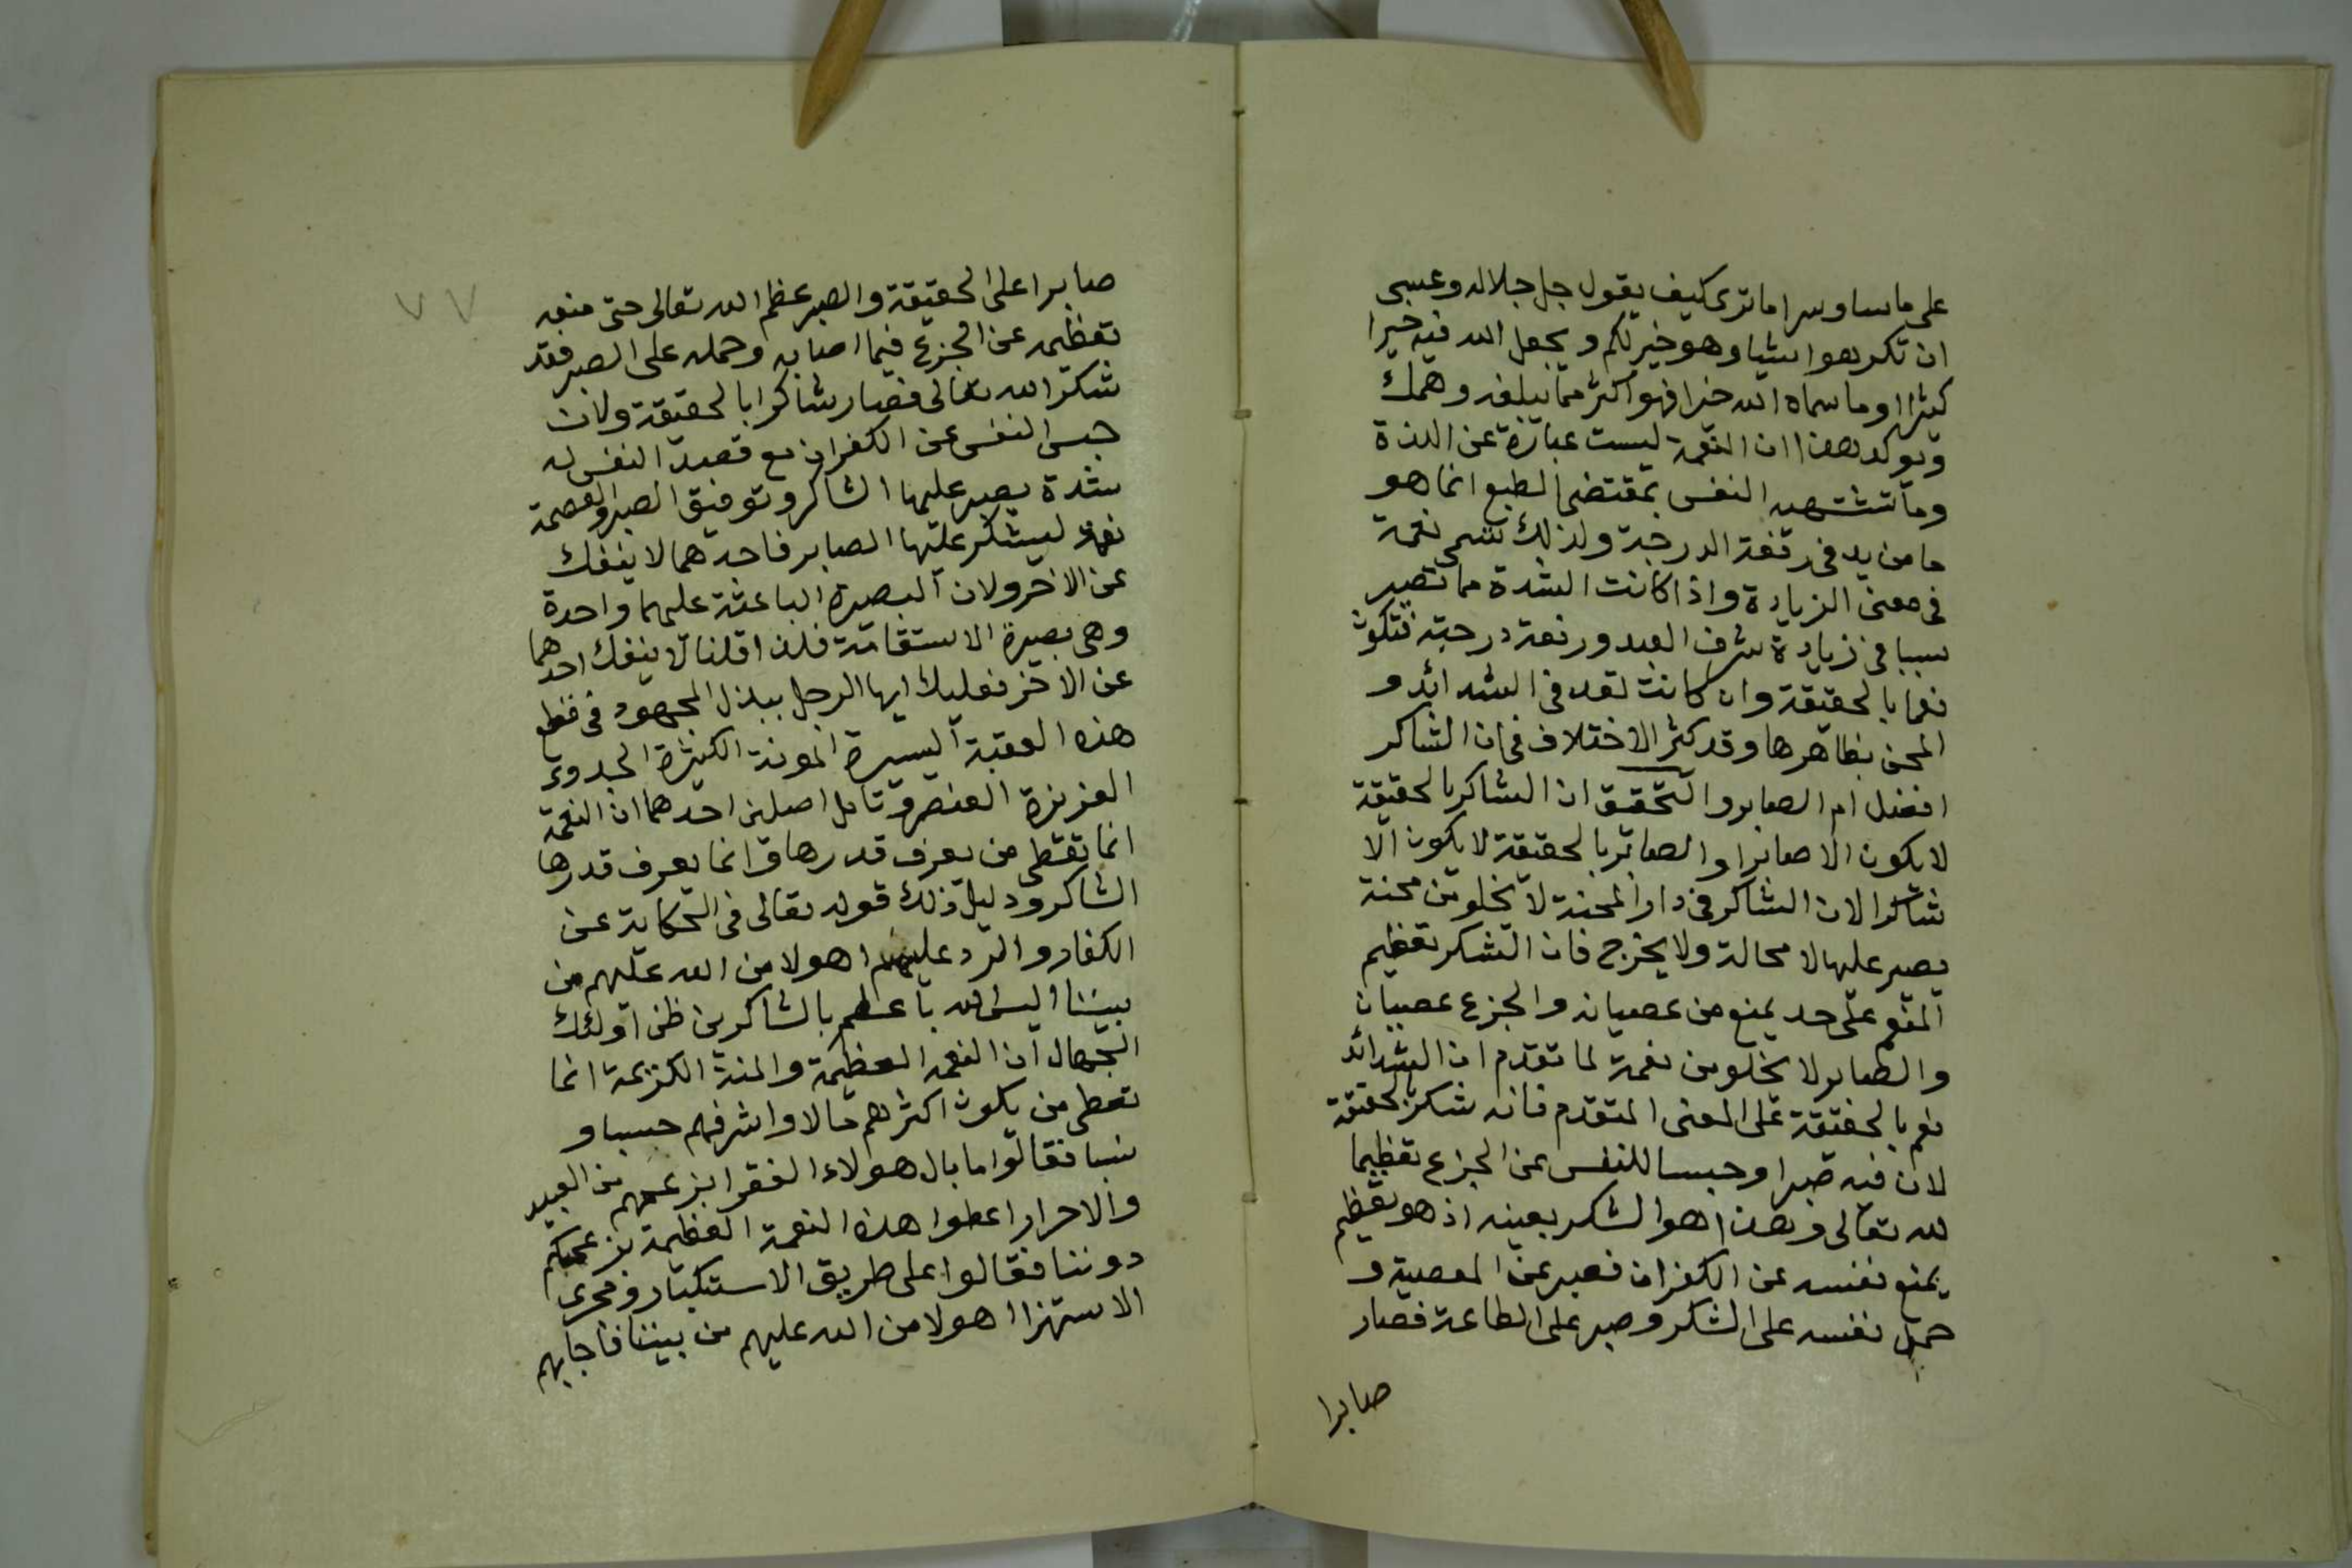 على ما ساوسرا ما ترى كيف يقول جل جلاله وعسى
ان تكرهوا شيا وهو خير لكم ويجعل الله فيه خيرا
كثيرا وما سماه الله خيرا فهو اكثر مما يبلغه وهمك
ويوكد هذا ان النعمة ليست عبارة عن اللذة
وما تشتهيه النفس بمقتضى الطبع انما هو
ما من يد فى رفعة الدرجة ولذلك تسمى نعمة
فى معنى الزيادة واذا كانت الشدة مما تصير
سببا فى زيادة شرف العبد ورفعة درجته فتكون
نعما بالحقيقة وان كانت تعد فى الشدائد و
المحن بظاهرها وقد كثر الاختلاف فى ان الشاكر
افضل ام الصابر والتحقيق ان الشاكر بالحقيقة
لا يكون الا صابرا والصابر بالحقيقة لا يكون الا
شاكرا لان الشاكر فى دار المحنة لا يخلو من محنة
يصبر عليها لا محالة ولا يجزع فان الشكر تعظيم
المنعم على حد يمنع من عصيانه والجزع عصيان
والصابر لا يخلو من نعمة لما تقدم ان الشدائد
نعم بالحقيقة على المعنى المتقدم فانه شكر بالحقيقة
لان فيه صبرا وحبسا للنفس عن الجزع تعظيما
لله تعالى وهذا هو الشكر بعينه اذ هو تعظيم
يمنع نفسه عن الكفران فصبر عن المعصية و
حمل نفسه على الشكر وصبر على الطاعة فصار
صابرا
٧٧
صابرا على الحقيقة والصبر عظم الله تعالى حتى منعه
تعظيمه عن الجزع فيما اصابه وحمله على الصبر فقد
شكر الله تعالى فصار شاكرا بالحقيقة ولان
حبس النفس عن الكفران مع قصد النفس له
شدة يصبر عليها الشاكر وتوفيق الصبر والعصمة
نعمة ليشكر عليها الصابر فاحدهما لا ينفك
عن الاخر ولان البصيرة الباعثة عليهما واحدة
وهى بصيرة الاستقامة فلذا قلنا لا ينفك احدهما
عن الاخر فعليك ايها الرجل ببذل المجهود فى قطع
هذه العقبة اليسيرة المونة الكثيرة الجدوى
العزيزة العنصر وتامل اصلين احدهما ان النعمة
انما تعطى من يعرف قدرها وانما يعرف قدرها
الشاكر ودليل ذلك قوله تعالى فى الحكاية عن
الكفار والرد عليهم اهولا من الله عليهم من
بيننا اليس الله باعلم بالشاكرين ظن اولئك
الجهال ان النعمة العظيمة والمنة الكريمة انما
تعطى من يكون اكثرهم مالا واشرفهم حسبا و
نسبا فقالوا ما بال هولاء الفقرا بزعمهم من العبيد
والاحرار اعطوا هذه النعمة العظيمة بزعمكم
دوننا فقالوا على طريق الاستكبار ومجرى
الاستهزا اهولا من الله عليهم من بيننا فاجابهم